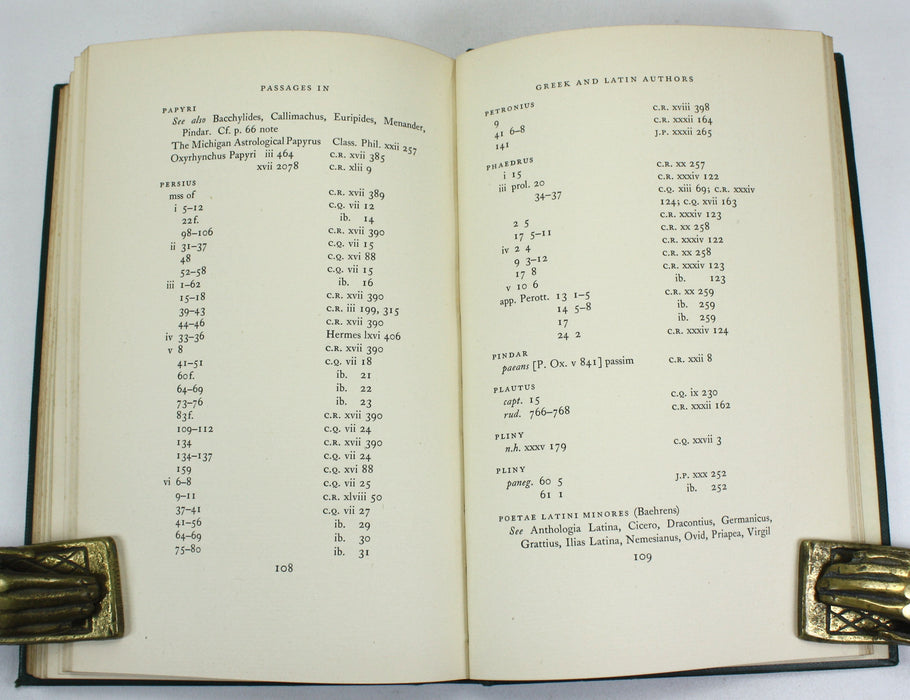 PASSAGES IN
PAPYRI
See also Bacchylides, Callimachus, Euripides, Menander,
Pindar. Cf. p. 66 note
The Michigan Astrological Papyrus Class. Phil. xxii 257
Oxyrhynchus Papyri iii 464 C.R. xvii 385
xvii 2078 C.R. xliii 9
PERSIUS
mss of C.R. xvii 389
i 5–12 C.Q. vii 12
22f. ib. 14
98–106 C.R. xvii 390
ii 31–37 C.Q. vii 15
48 C.Q. xvi 88
52–58 C.Q. vii 15
iii 1–62 ib. 16
15–18 C.R. xvii 390
39–43 C.R. iii 199, 315
44–46 C.R. xvii 390
iv 33–36 Hermes lxvi 406
v 8 C.R. xvii 390
41–51 C.Q. vii 18
60f. ib. 21
64–69 ib. 22
73–76 ib. 23
83f. C.R. xvii 390
109–112 C.Q. vii 24
134 C.R. xvii 390
134–137 C.Q. vii 24
159 C.Q. xvi 88
vi 6–8 C.Q. vii 25
9–11 C.R. xlviii 50
37–41 C.Q. vii 27
41–56 ib. 29
64–69 ib. 30
75–80 ib. 31
108
GREEK AND LATIN AUTHORS
PETRONIUS
9 C.R. xviii 398
41 6–8 C.R. xxxii 164
141 J.P. xxxii 265
PHAEDRUS
i 15 C.R. xx 257
iii prol. 20 C.R. xxxiv 122
34–37 C.Q. xiii 69; C.R. xxxiv
124; C.Q. xvii 163
2 5 C.R. xxxiv 123
17 5–11 C.R. xx 258
iv 2 4 C.R. xxxiv 122
9 3–12 C.R. xx 258
17 8 C.R. xxxiv 123
v 10 6 ib. 123
app. Perott. 13 1–5 C.R. xx 259
14 5–8 ib. 259
17 ib. 259
24 2 C.R. xxxiv 124
PINDAR
paeans [P. Ox. v 841] passim C.R. xxii 8
PLAUTUS
capt. 15 C.Q. ix 230
rud. 766–768 C.R. xxxii 162
PLINY
n.h. xxxv 179 C.Q. xxvii 3
PLINY
paneg. 60 5 J.P. xxx 252
61 1 ib. 252
POETAE LATINI MINORES (Baehrens)
See Anthologia Latina, Cicero, Dracontius, Germanicus,
Grattius, Ilias Latina, Nemesianus, Ovid, Priapea, Virgil
109